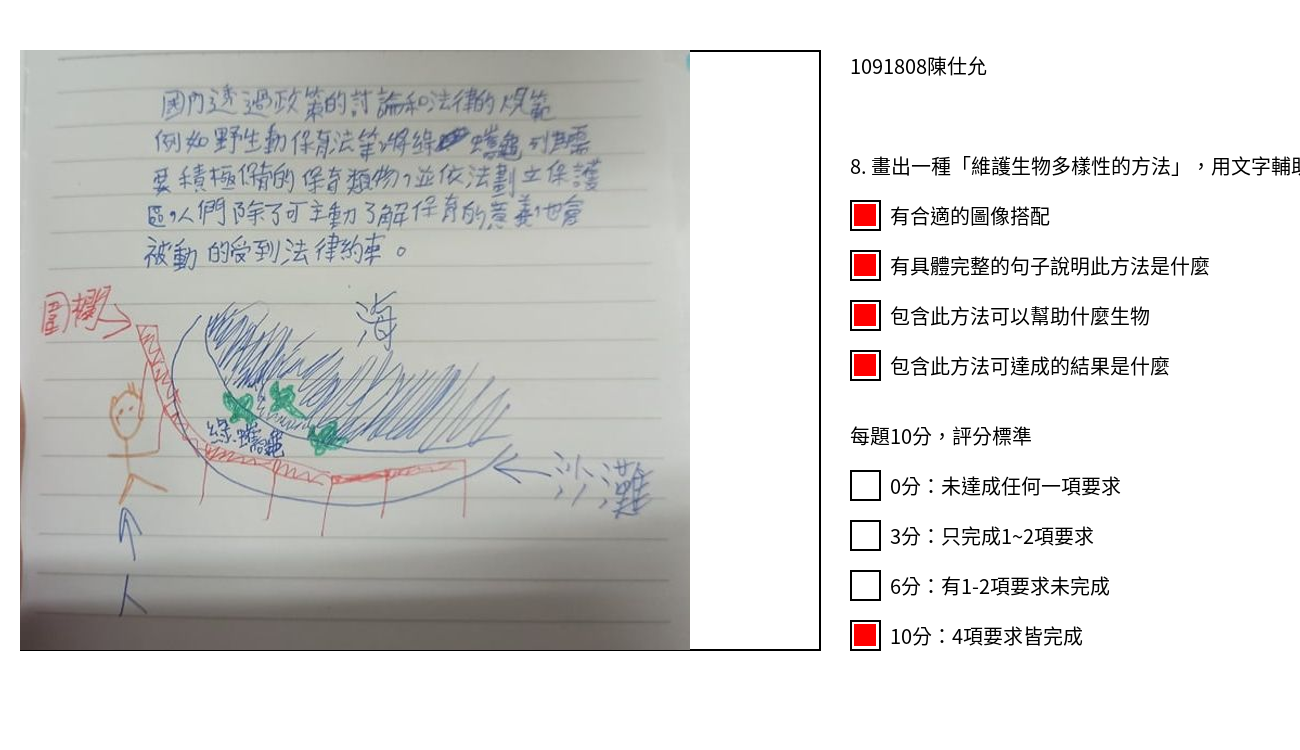 國內透過政策的討論和法律的規範
例如野生動保育法等,將綠蠵龜列為需
要積極保育的保育類物,並依法劃立保護
區,人們除了可主動了解保育的意義,也會
被動的受到法律約束。
圍欄
海
綠蠵龜
沙灘
人
1091808陳仕允
8. 畫出一種「維護生物多樣性的方法」,用文字輔助
有合適的圖像搭配
有具體完整的句子說明此方法是什麼
包含此方法可以幫助什麼生物
包含此方法可達成的結果是什麼
每題10分,評分標準
0分:未達成任何一項要求
3分:只完成1~2項要求
6分:有1-2項要求未完成
10分:4項要求皆完成